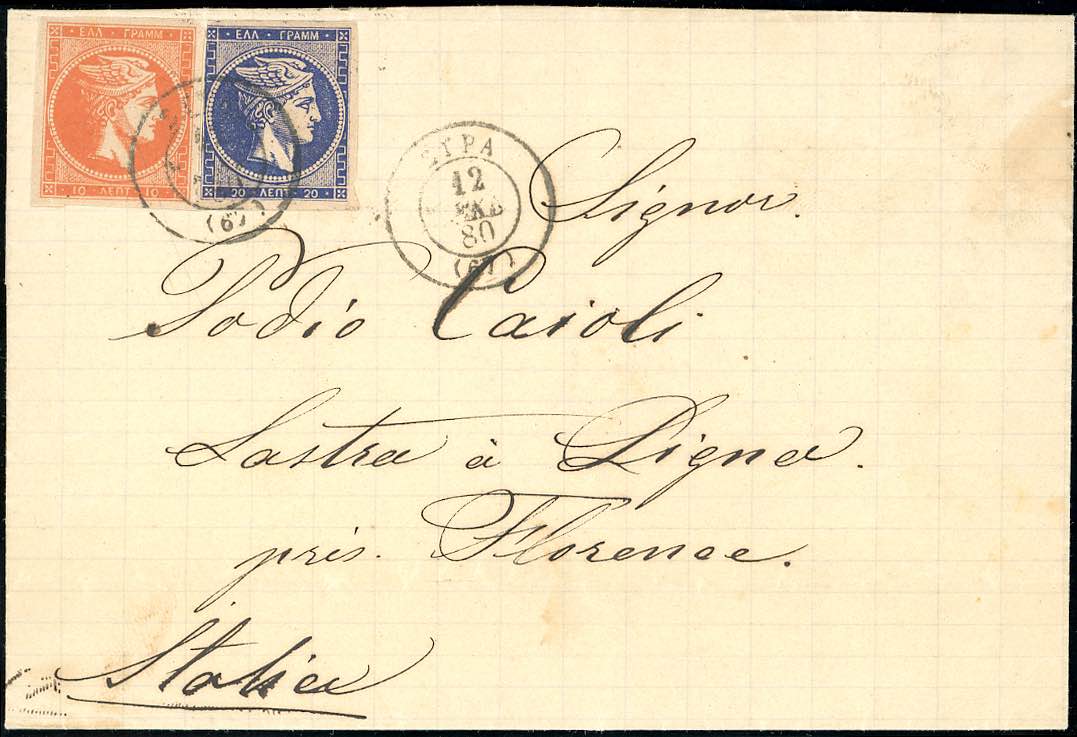 ΕΛΛ ΓΡΑΜΜ
10 ΛΕΠΤ 10
ΕΛΛ ΓΡΑΜΜ
20 ΛΕΠΤ 20
(67)
ΣΥΡΑ
12
ΔΕΚΒ
80
(67)
Signor.
Podio Caioli
Lastra à Signa.
près. Florence.
Italie